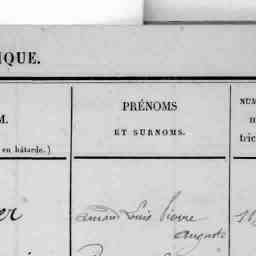 IQUE.
PRÉNOMS
ET SURNOMS.
NUM
M.
m
tric
en bâtarde.)
er
Armand Louis Pierre
Auguste